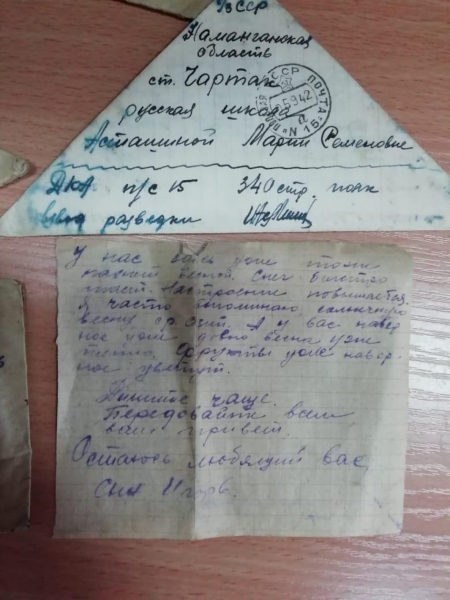 УзССР
Наманганская
область
ст. Чартак
русская школа
Асташиной Марии Семеновне
СССР ПОЧТА
ДКА п/с 15 340 стр. полк
взвод разведки
У нас здесь уже тоже
весной. Снег быстро
Настроение повышается.
Я часто вспоминаю солнечную
весну ср. Азии. А у вас навер
ное уже давно весна уже
уже навер-
ное цветут.
Пишите чаще.
Передавайте всем
привет.
Остаюсь любящий вас
Сын Игорь.